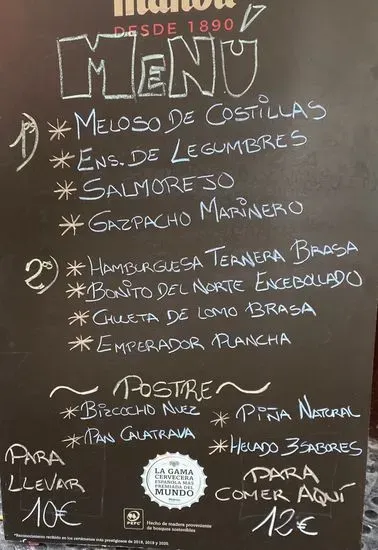 mahou
DESDE 1890
MENÚ
1os
* MELOSO DE COSTILLAS
* ENS. DE LEGUMBRES
* SALMOREJO
* GAZPACHO MARINERO
2os
* HAMBURGUESA TERNERA BRASA
* BONITO DEL NORTE ENCEBOLLADO
* CHULETA DE LOMO BRASA
* EMPERADOR PLANCHA
~ POSTRE ~
* BIZCOCHO NUEZ
* PIÑA NATURAL
* PAN CALATRAVA
* HELADO 3 SABORES
PARA
LLEVAR
10€
LA GAMA
CERVECERA
ESPAÑOLA MÁS
PREMIADA DEL
MUNDO
PEFC
Hecho de madera proveniente
de bosques sostenibles
PARA
COMER AQUÍ
12€
*Reconocimiento recibido en los certámenes más prestigiosos de 2018, 2019 y 2020.